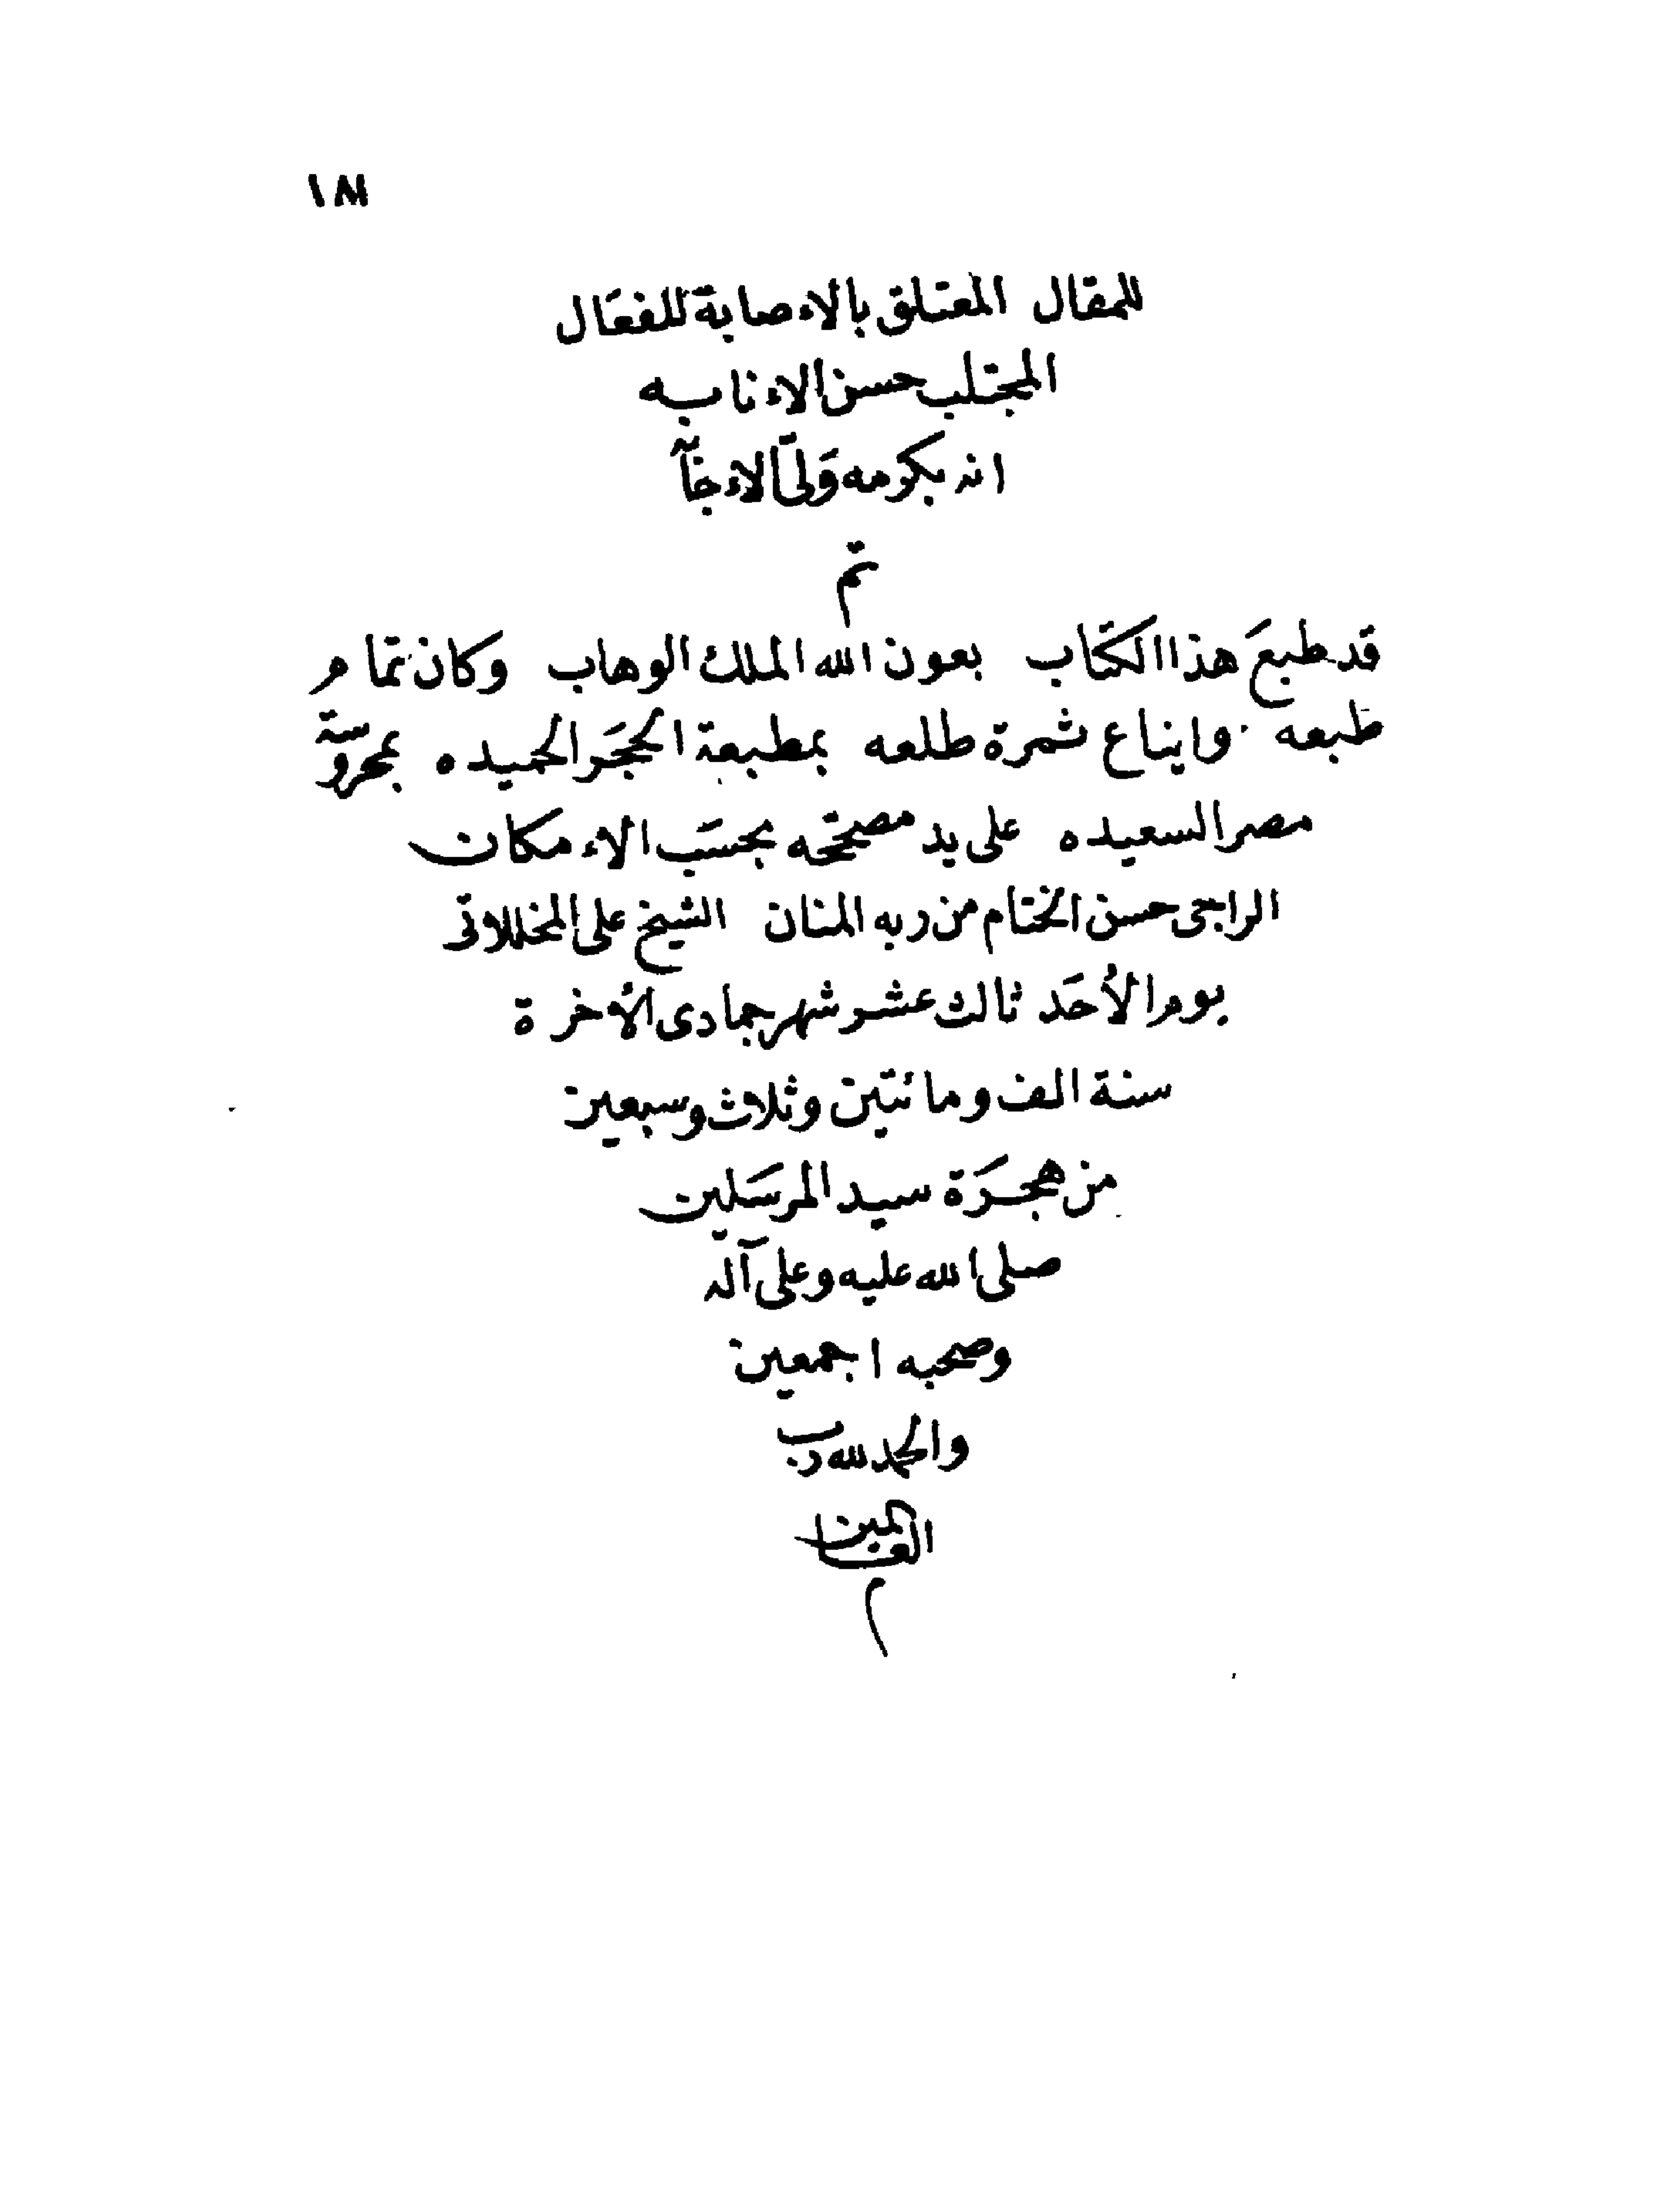 ١٨١
للمقال المعتلق بالاءصابة للفعَال
المجتلب حسن الاءنابه
انه بكرمه وَلىّ الاءجَابَة
تم
قد طبعَ هذا الكتَاب بعون الله الملك الوهاب وكان تمام
طبعه وايناع ثمرة طلعه بمطبعة الحجَر الحميده بمحروسة
مصر السعيده على يد مصححَه بحسَب الاءمكان
الراجى حسن الختام من ربه المنان الشيخ على المخللاتى
يوم الأحَد ثالث عشر شهر جمادى الأخرة
سنة الف ومائتين وثلاث وسبعين
من هجرَة سيد المرسَلين
صلى الله عليه وعلى آله
وصحبه اجمعين
والحمد لله رب
العالمين
م